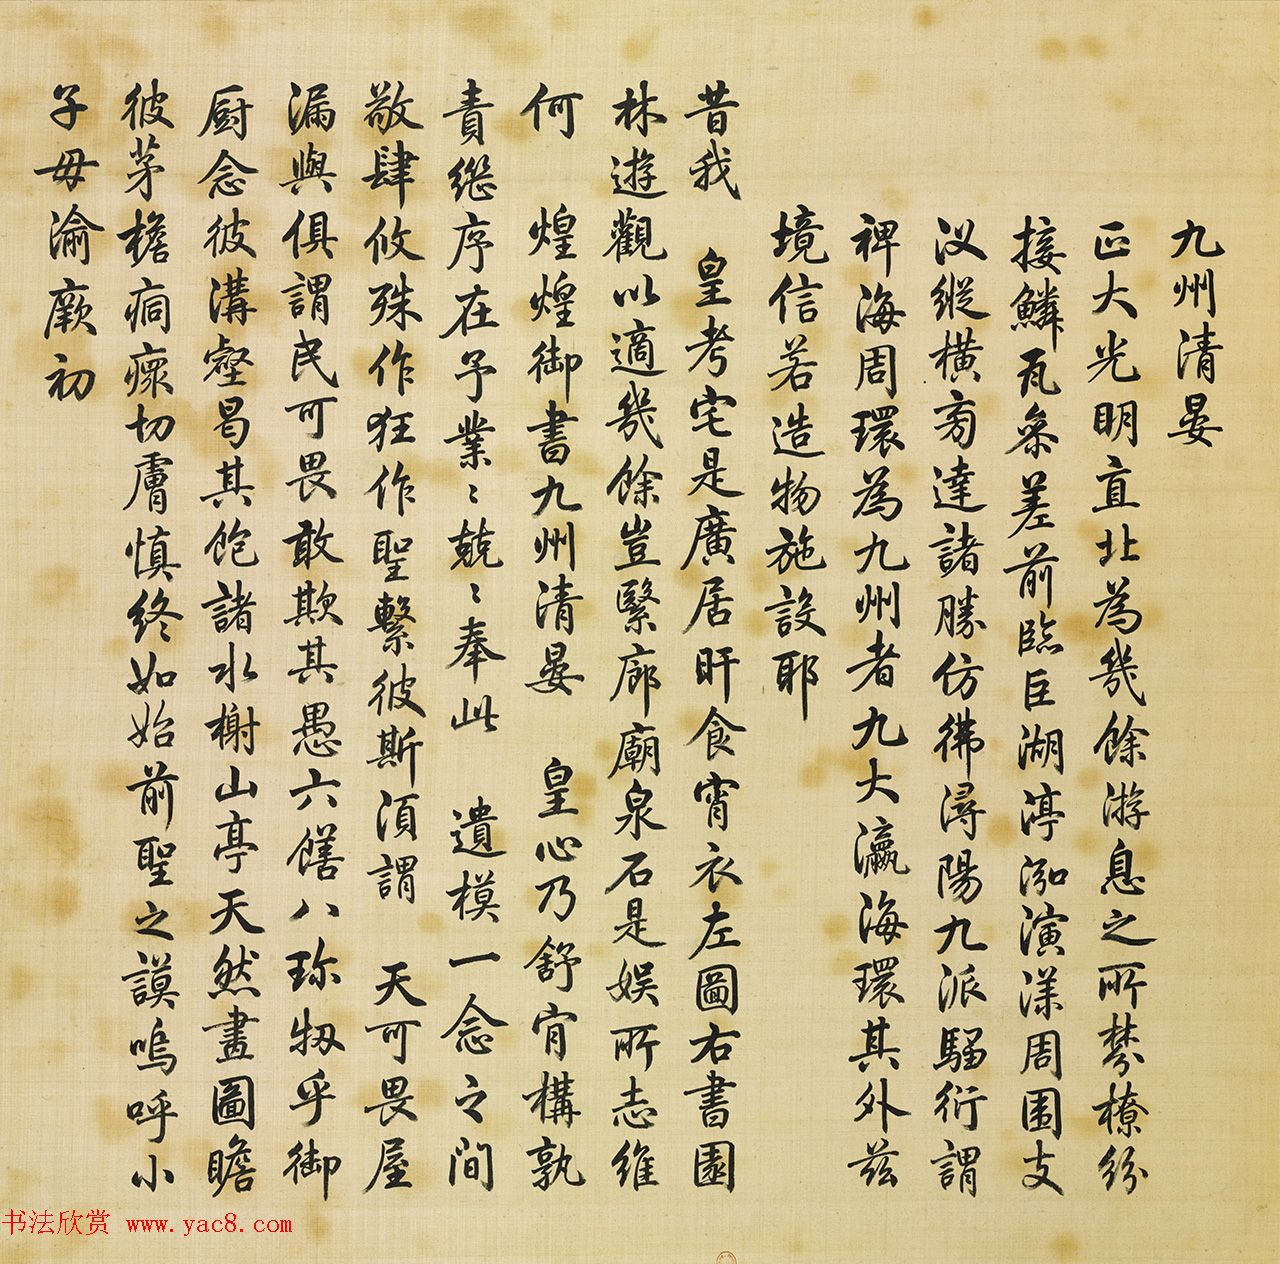 九州清晏
正大光明直北為幾餘游息之所棼橑紛
接鱗瓦叅差前臨巨湖渟泓演漾周圍支
汊縱橫旁達諸勝仿彿潯陽九派騶衍謂
裨海周環為九州者九大瀛海環其外茲
境信若造物施設耶
昔我 皇考宅是廣居旰食宵衣左圖右書園
林遊觀以適幾餘豈繄廊廟泉石是娱所志維
何 煌煌御書九州清晏 皇心乃舒肯構孰
責繼序在予業〻兢〻奉此 遺模一念之間
敬肆攸殊作狂作聖繫彼斯須謂 天可畏屋
漏與俱謂民可畏敢欺其愚六饍八珎牣乎御
厨念彼溝壑曷其飽諸水榭山亭天然畫圖瞻
彼茅檐痌瘝切膚慎終如始前聖之謨嗚呼小
子毋渝厥初
书法欣赏 www.yac8.com